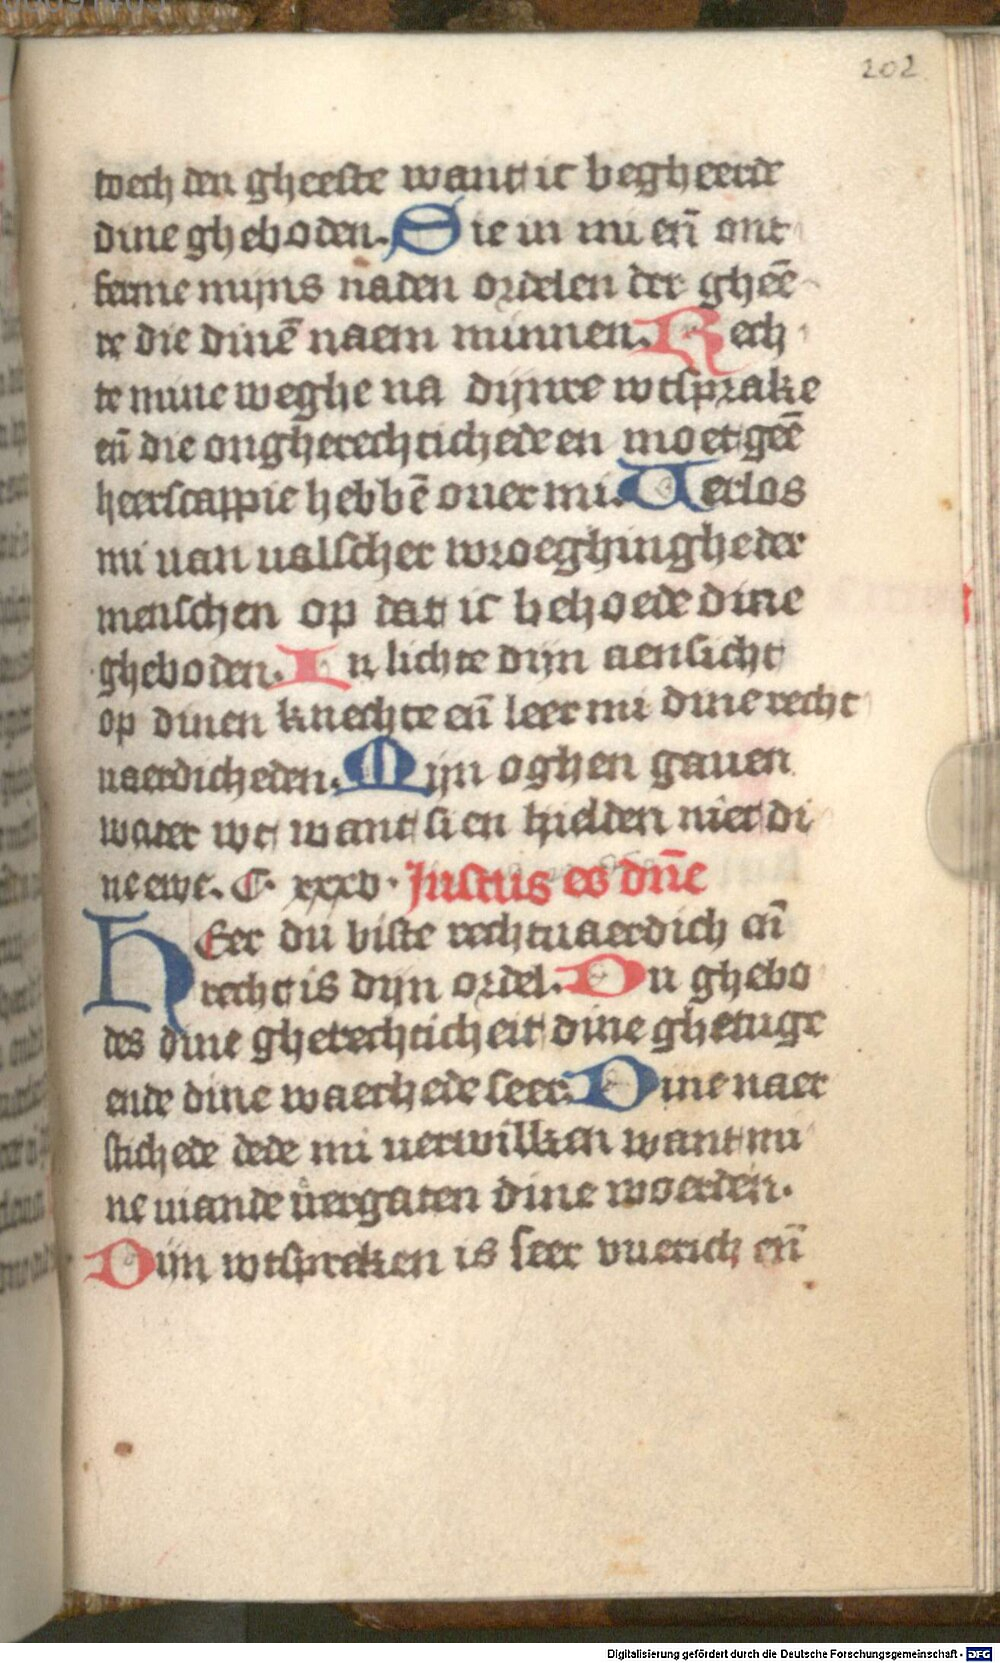 202
toech den gheeste want ic begheerde
dine gheboden. Sie in mi en̄ ont
ferme mijns naden ordelen der gheē
re die dinē naem minnen. Rech
te mine weghe na dijnre wtsprake
en̄ die ongherechticheden en moet geē
heerscappie hebbē ouer mi. Verlos
mi uan ualscher wroeghinghe der
menschen op dat ic behoede dine
gheboden. In lichte dijn aensicht
op dinen knechte en̄ leer mi dine recht
uaerdicheden. Mijn oghen gauen
water wt want si en hielden niet di
ne ewe. C. xxxv. Justus es dn̄e
HEer du biste rechtuaerdich en̄
recht is dijn ordel. Du ghebo
des dine gherechticheit dine ghetuge
ende dine waerhede seer. Dine naer
stichede dede mi uerwillen want mi
ne uiande uergaten dine woerden.
Dijn wtspreken is seer vuerich en̄
Digitalisierung gefördert durch die Deutsche Forschungsgemeinschaft - DFG